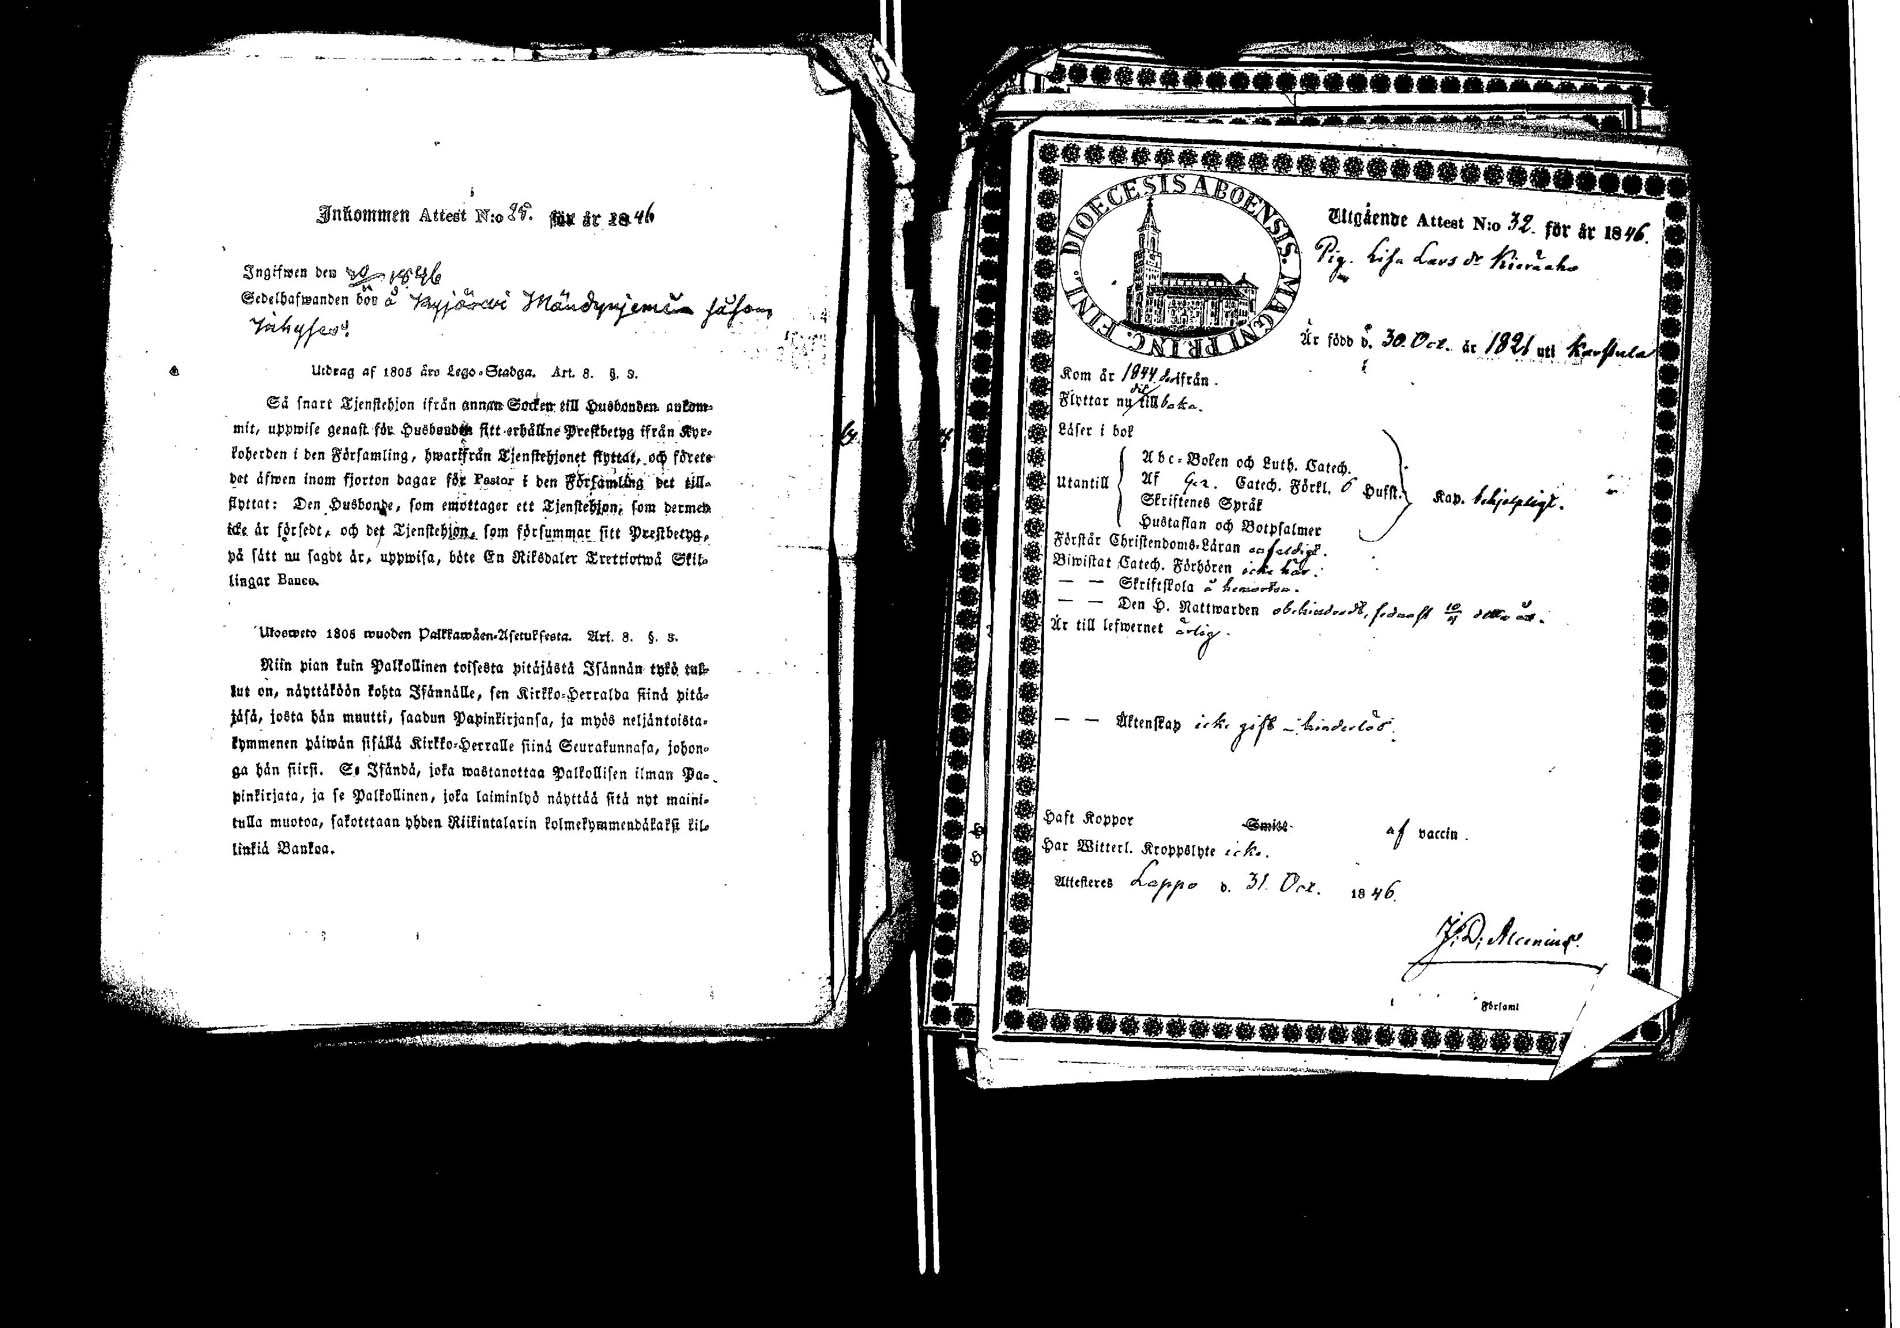 Inkommen Attest N:o 25. för år 1846
Ingifwen den 1846
Sedelhafwanden bör å Kyjärwi
Utdrag af 1805 års Lego-Stadga. Art. 8. §. 3.
Så snart Tjenstehjon ifrån annan Socken till Husbonden ankom-
mit, uppwise genast för Husbonden sitt erhållne Prestbetyg ifrån Kyr-
koherden i den Församling, hwarifrån Tjenstehjonet flyttat, och förete
det äfwen inom fjorton dagar för Pastor i den Församling det till-
flyttat: Den Husbonde, som emottager ett Tjenstehjon, som dermed
icke är försedt, och det Tjenstehjon, som försummar sitt Prestbetyg,
på sätt nu sagdt är, uppwisa, böte En Riksdaler Trettiotwå Skil-
lingar Banco.
Ulosweto 1805 wuoden Palkkawäen-Asetuksesta. Art. 8. §. 3.
Niin pian kuin Palkollinen toisesta pitäjästä Isännän tykö tul-
lut on, näyttäköön kohta Isännälle, sen Kirkko-Herralda siinä pitä-
jäsä, josta hän muutti, saadun Papinkirjansa, ja myös neljäntoista-
kymmenen päiwän sisällä Kirkko-Herralle siinä Seurakunnasa, johon-
ga hän siirsi. Se Isändä, joka wastanottaa Palkollisen ilman Pa-
pinkirjata, ja se Palkollinen, joka laiminlyö näyttää sitä nyt maini-
tulla muotoa, sakotetaan yhden Riikintalarin kolmekymmendäkaksi kil-
linkiä Bankoa.
DIOECESIS ABOENSIS. MAGNI PRINC. FINL.
Utgående Attest N:o 32. för år 1846.
Pig. Lisa Lars dr Kiviaho
Är född d. 30. Oct. år 1821 uti Karstula
Kom år 1844 derifrån.
Flyttar nu dit tillbaka.
Läser i bok
Utantill
Abc-Boken och Luth. Catech.
Af Catech. Förkl. 6 Hufst.
Skriftenes Språk
Hustaflan och Botpsalmer
Kap. behjelpligt.
Förstår Christendoms-Läran enfaldigt.
Biwistat Catech. Förhören icke här.
— — Skriftskola
— — Den H. Nattwarden obehindradt, sednast 10/5 detta år.
Är till lefwernet ärlig.
— — Äktenskap icke gift – hinderlös.
Haft Koppor Smitt. af vaccin.
Har Witterl. Kroppslyte icke.
Attesteres Lappo d. 31. Oct. 1846.
J. D. Alcenius.
Församl